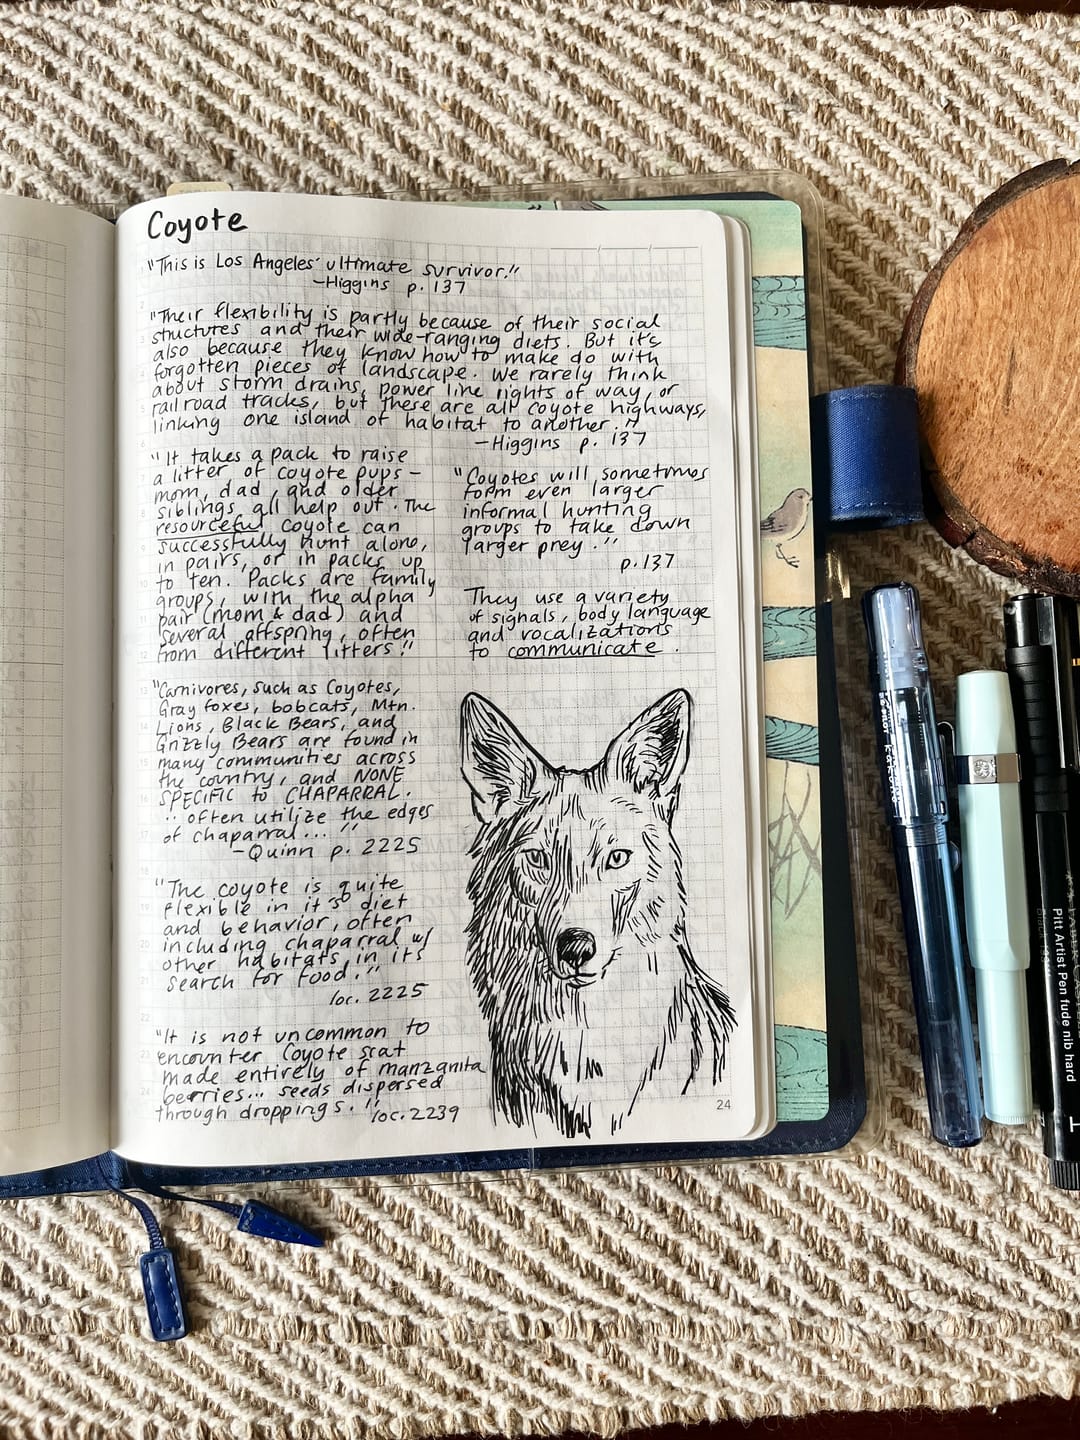 Coyote
"This is Los Angeles' ultimate survivor."
-Higgins p. 137
"Their flexibility is partly because of their social
structures and their wide-ranging diets. But it's
also because they know how to make do with
forgotten pieces of landscape. We rarely think
about storm drains, power line rights of way, or
railroad tracks, but these are all coyote highways,
linking one island of habitat to another."
-Higgins p. 137
"It takes a pack to raise
a litter of coyote pups -
mom, dad, and older
siblings all help out. The
resourceful coyote can
successfully hunt alone,
in pairs, or in packs up
to ten. Packs are family
groups, with the alpha
pair (mom & dad) and
several offspring, often
from different litters."
"Coyotes will sometimes
form even larger
informal hunting
groups to take down
larger prey."
p.137
They use a variety
of signals, body language
and vocalizations
to communicate.
"Carnivores, such as Coyotes,
Gray foxes, bobcats, Mtn.
Lions, Black Bears, and
Grizzly Bears are found in
many communities across
the country, and NONE
SPECIFIC to CHAPARRAL.
.. often utilize the edges
of chaparral... "
-Quinn p. 2225
"The coyote is quite
flexible in it's diet
and behavior, often
including chaparral w/
other habitats in its
search for food."
loc. 2225
"It is not uncommon to
encounter Coyote scat
made entirely of manzanita
berries... seeds dispersed
through droppings."
loc. 2239
24
Pitt Artist Pen fude nib hard